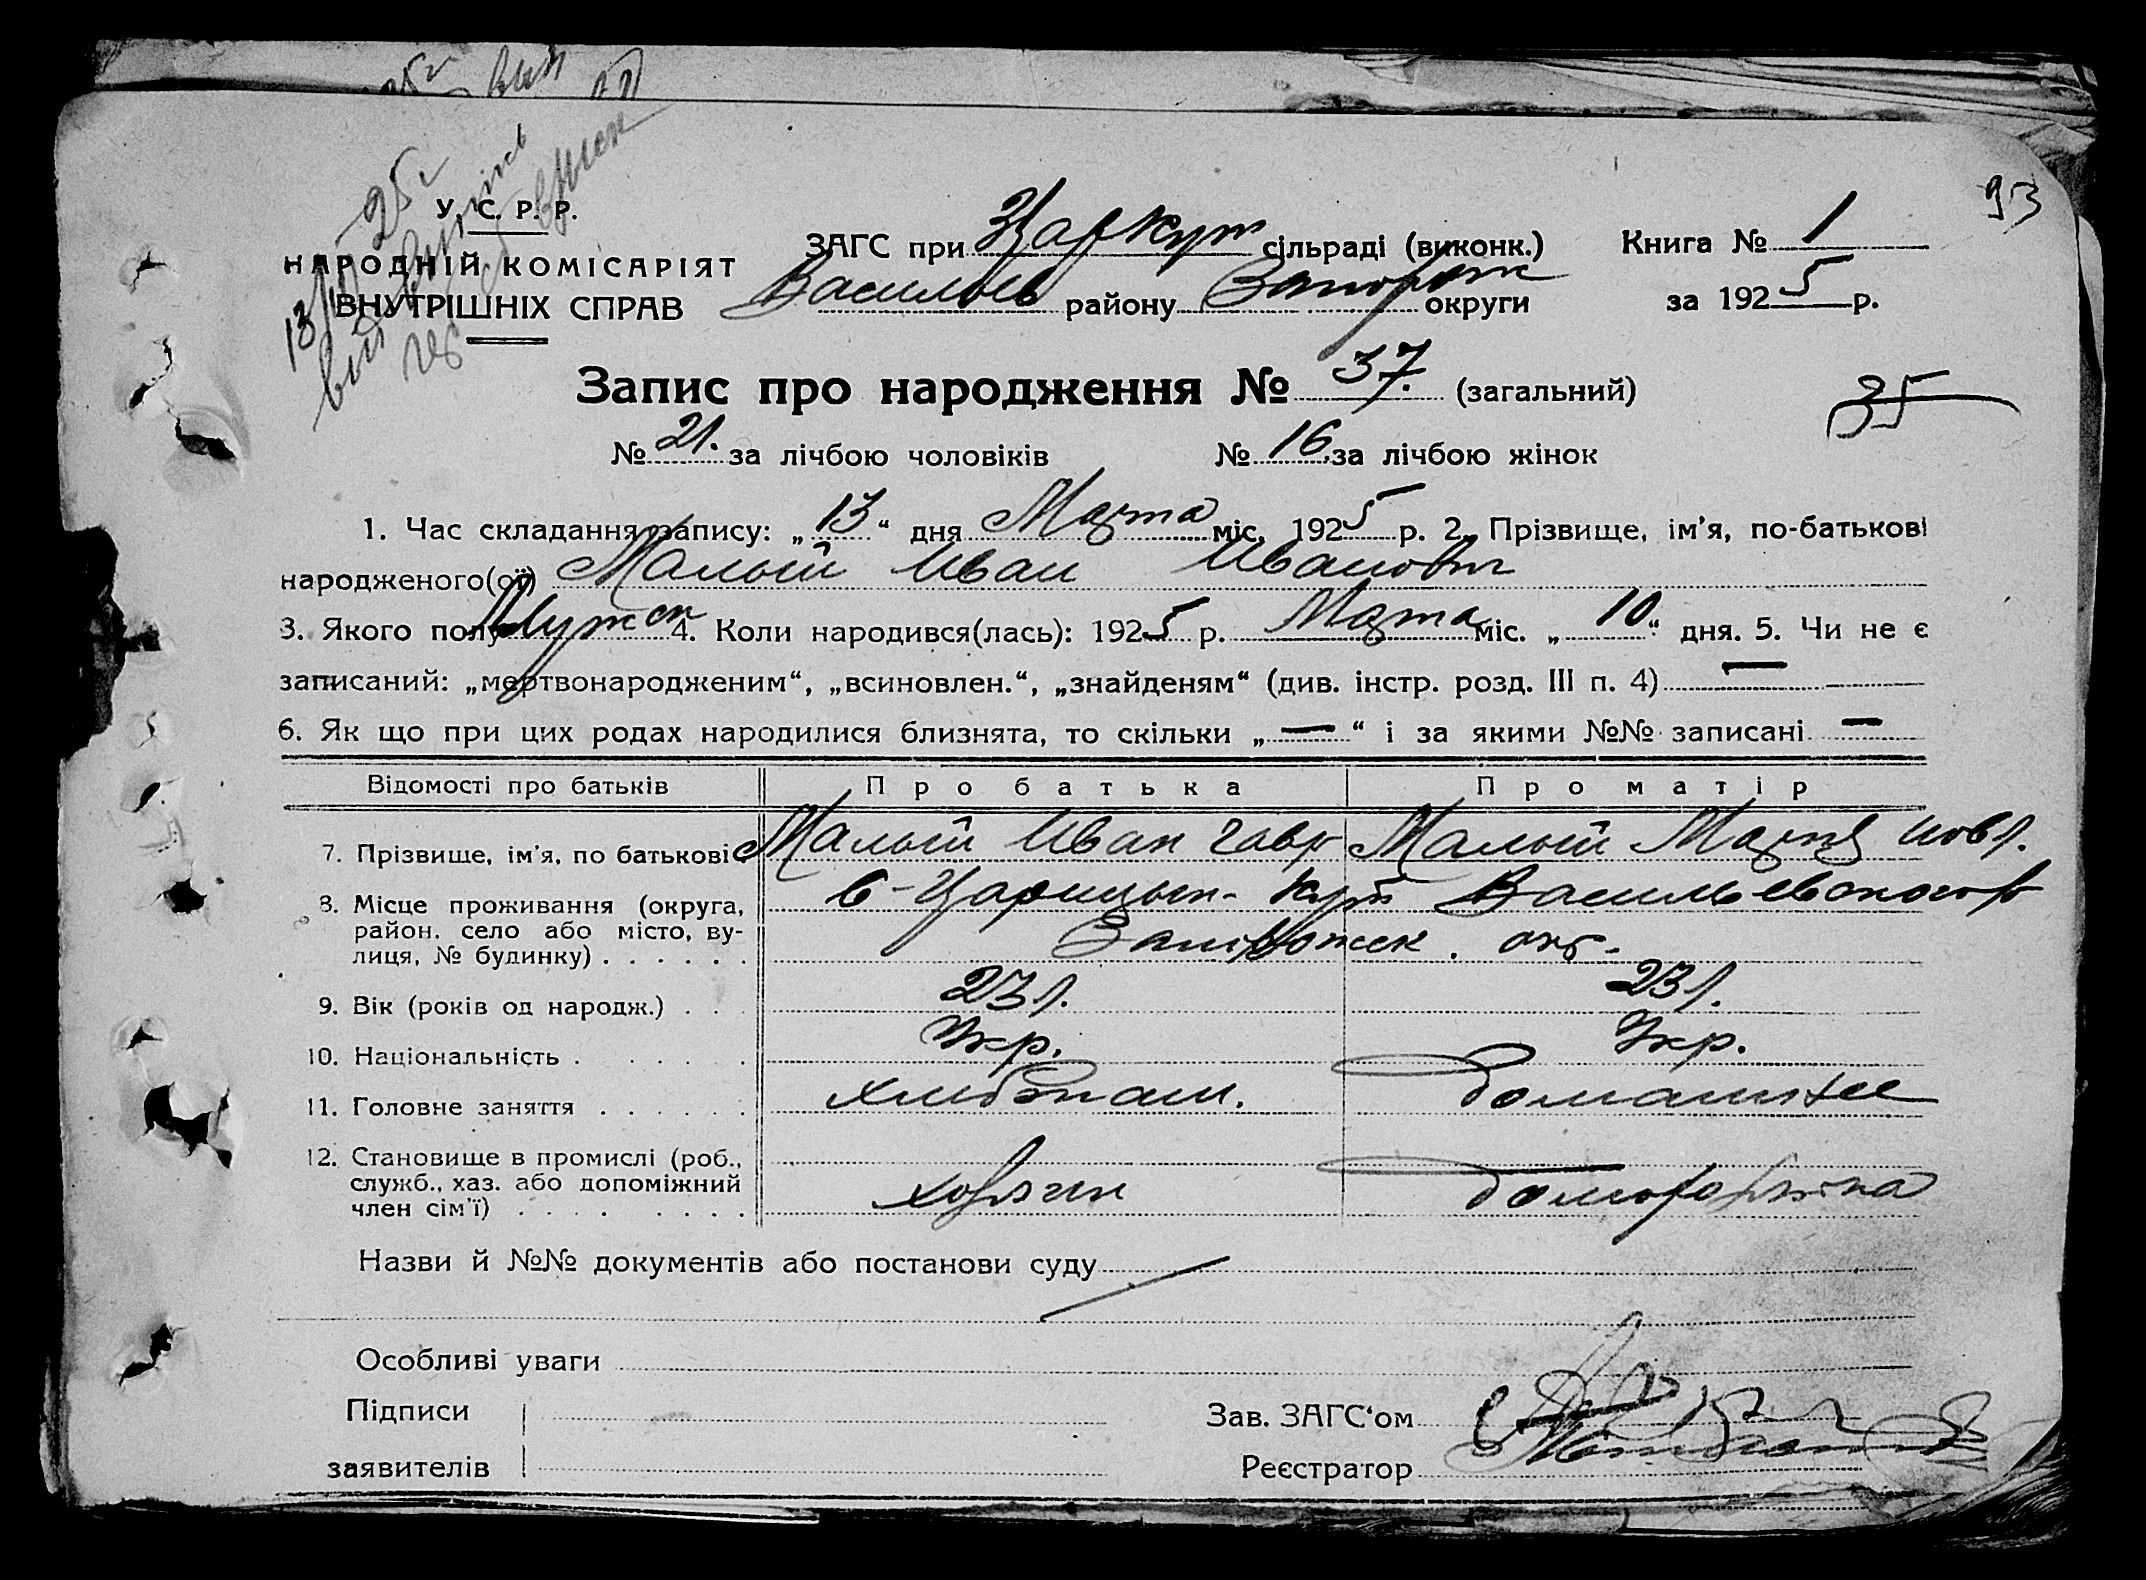 93
У. С. Р. Р.
НАРОДНІЙ КОМІСАРІЯТ
ВНУТРІШНІХ СПРАВ
ЗАГС при Царкут сільраді (виконк.) Книга № 1
Васильев району Запорож округи за 1925 р.
Запис про народження № 37. (загальний)
35
№ 21. за лічбою чоловіків № 16 за лічбою жінок
1. Час складання запису: „13“ дня Марта міс. 1925 р. 2. Прізвище, ім'я, по-батькові
народженого(ої) Малый Иван Иванович
3. Якого полу Мужск 4. Коли народився(лась): 1925 р. Марта міс. „10“ дня. 5. Чи не є
записаний: „мертвонародженим“, „всиновлен.“, „знайденям“ (див. інстр. розд. III п. 4) —
6. Як що при цих родах народилися близнята, то скільки „—“ і за якими №№ записані —
Відомості про батьків Про батька Про матір
7. Прізвище, ім'я, по батькові Малый Иван Гавр Малый Мария
8. Місце проживання (округа, с-Царицын-Кут Васильевского р
район, село або місто, ву-
лиця, № будинку) . . . . . . Запорожск. окр.
9. Вік (років од народж.) . . . 23 г. 23 г.
10. Національність . . . . . Укр. Укр.
11. Головне заняття . . . . . . хлибопаш. домашнее
12. Становище в промислі (роб.,
служб., хаз. або допоміжний
член сім'ї) . . . . . . . . хозяин
Назви й №№ документів або постанови суду
Особливі уваги
Підписи Зав. ЗАГС'ом
заявителів Реєстратор